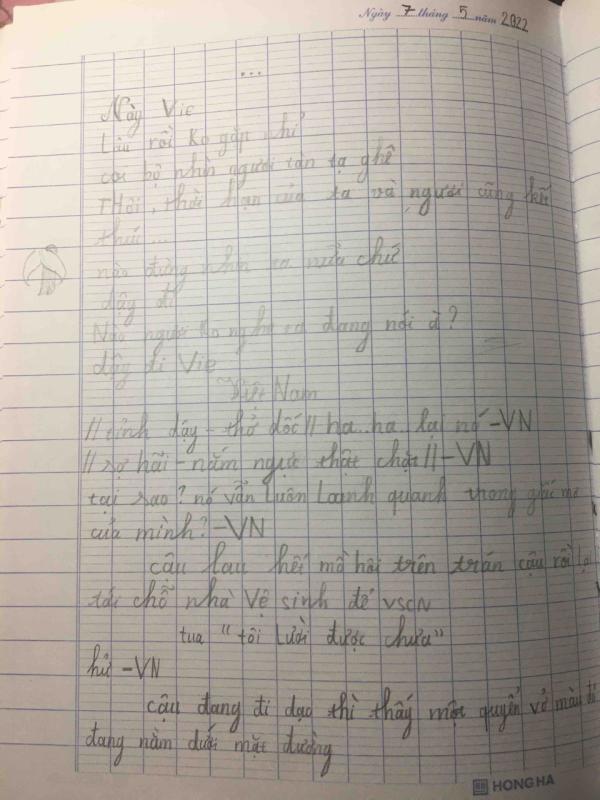 Ngày 7 tháng 5 năm 2022
...
Này Vie
Lâu rồi ko gặp nhỉ
coi bộ nhìn ngươi tàn tạ ghê
THôi, thời hạn của ta và ngươi cũng kết
thúc...
nào đừng nhìn ta nữa chứ
dậy đi
Nào ngươi ko nghe ta đang nói à?
dậy đi Vie
Việt Nam
//tỉnh dậy - thở dốc// ha..ha. lại nó -VN
//sợ hãi - nắm ngực thật chặt// -VN
tại sao? nó vẫn Luôn Loanh quanh trong giấc mơ
của mình? -VN
cậu lau hết mồ hôi trên trán cậu rồi lại
tới chỗ nhà Vệ sinh để VSCN
tua "tôi Lười được chưa"
hử -VN
cậu đang đi dạo thì thấy một quyển vở màu đỏ
đang nằm dưới mặt đường
HONG HA